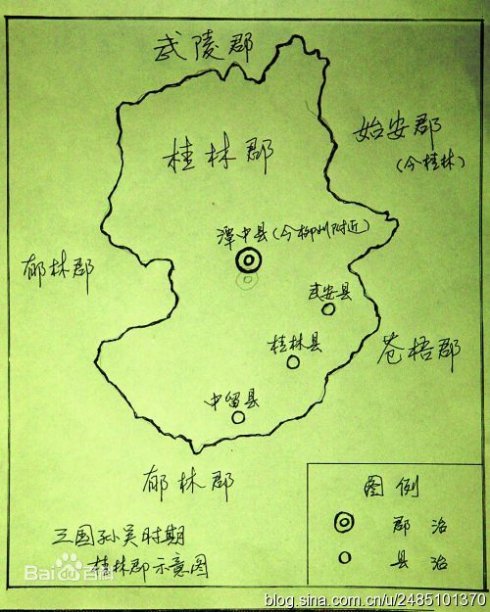 武陵郡
始安郡
(今桂林)
桂林郡
潭中县(今柳州附近)
郁林郡
武安县
桂林县
苍梧郡
中留县
郁林郡
图例
郡治
县治
三国孙吴时期
桂林郡示意图
Bai百科
blog.sina.com.cn/u/2485101370